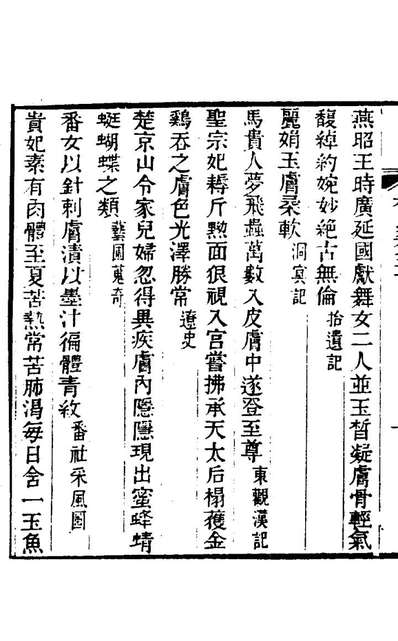 燕昭王時廣延國獻舞女二人並玉皙凝膚骨輕氣
馥綽約婉妙絶古無倫拾遺記
麗娟玉膚柔軟洞㝠記
馬貴人夢飛蟲萬數入皮膚中遂登至尊東觀漢記
聖宗妃耨斤黝面狠視入宫嘗拂承天太后榻獲金
鷄吞之膚色光澤勝常遼史
楚京山令家兒婦忽得異疾膚內隱隱現出蜜蜂蜻
蜓蝴蝶之類藝圃蒐奇
番女以針刺膚漬以墨汁徧體青紋番社采風圖
貴妃素有肉體至夏苦熱常苦肺渴每日含一玉魚